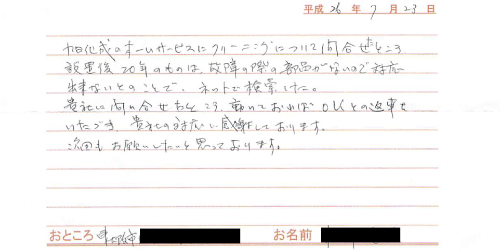 平成 26 年 7 月 23 日
旭化成のホームサービスにクリーニングについて問合せたところ
設置後20年のものは、故障の際の部品がないので対応
出来ないとのことで、ネットで検索した。
貴社に問い合せたところ、動いておればOKとの返事を
いただき、貴社の対応に感謝しております。
次回もお願いしたいと思っております。
おところ お名前